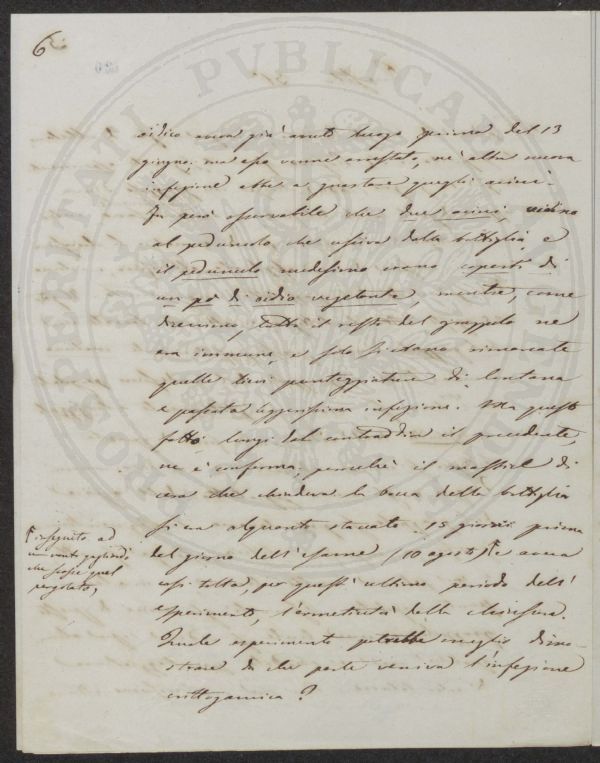 6
oidica aveva già avuto luogo prima del 13
giugno; ma essa venne arrestata, nè altra nuova
infezione ebbe a guastare quegli acini.
Fu però osservabile che due acini vicino
al peduncolo che usciva dalla bottiglia e
il peduncolo medesimo erano coperti di
un pò di oidio vegetante, mentre, come
dicemmo, tutto il resto del grappolo ne
era immune, e solo si erano rimarcate
quelle lievi punteggiature di lontana
e passata leggerissima infezione. Ma questo
fatto lungi dal contraddire il precedente
ne è conferma; perchè il mastice di
cera che chiudeva la bocca della bottiglia
si era alquanto staccato 15 giorni prima
del giorno dell'esame (10 agosto) e aveva
così tolta, per quest'ultimo periodo dell'
esperimento, l'ermeticità della chiusura.
Quale esperimento potrebbe meglio dimo-
strare da che parte veniva l'infezione
crittogamica?
in seguito ad
un vento gagliardo
che scosse quel
pergolato,
PROSPERITATI PUBLICAE AUGENDAE